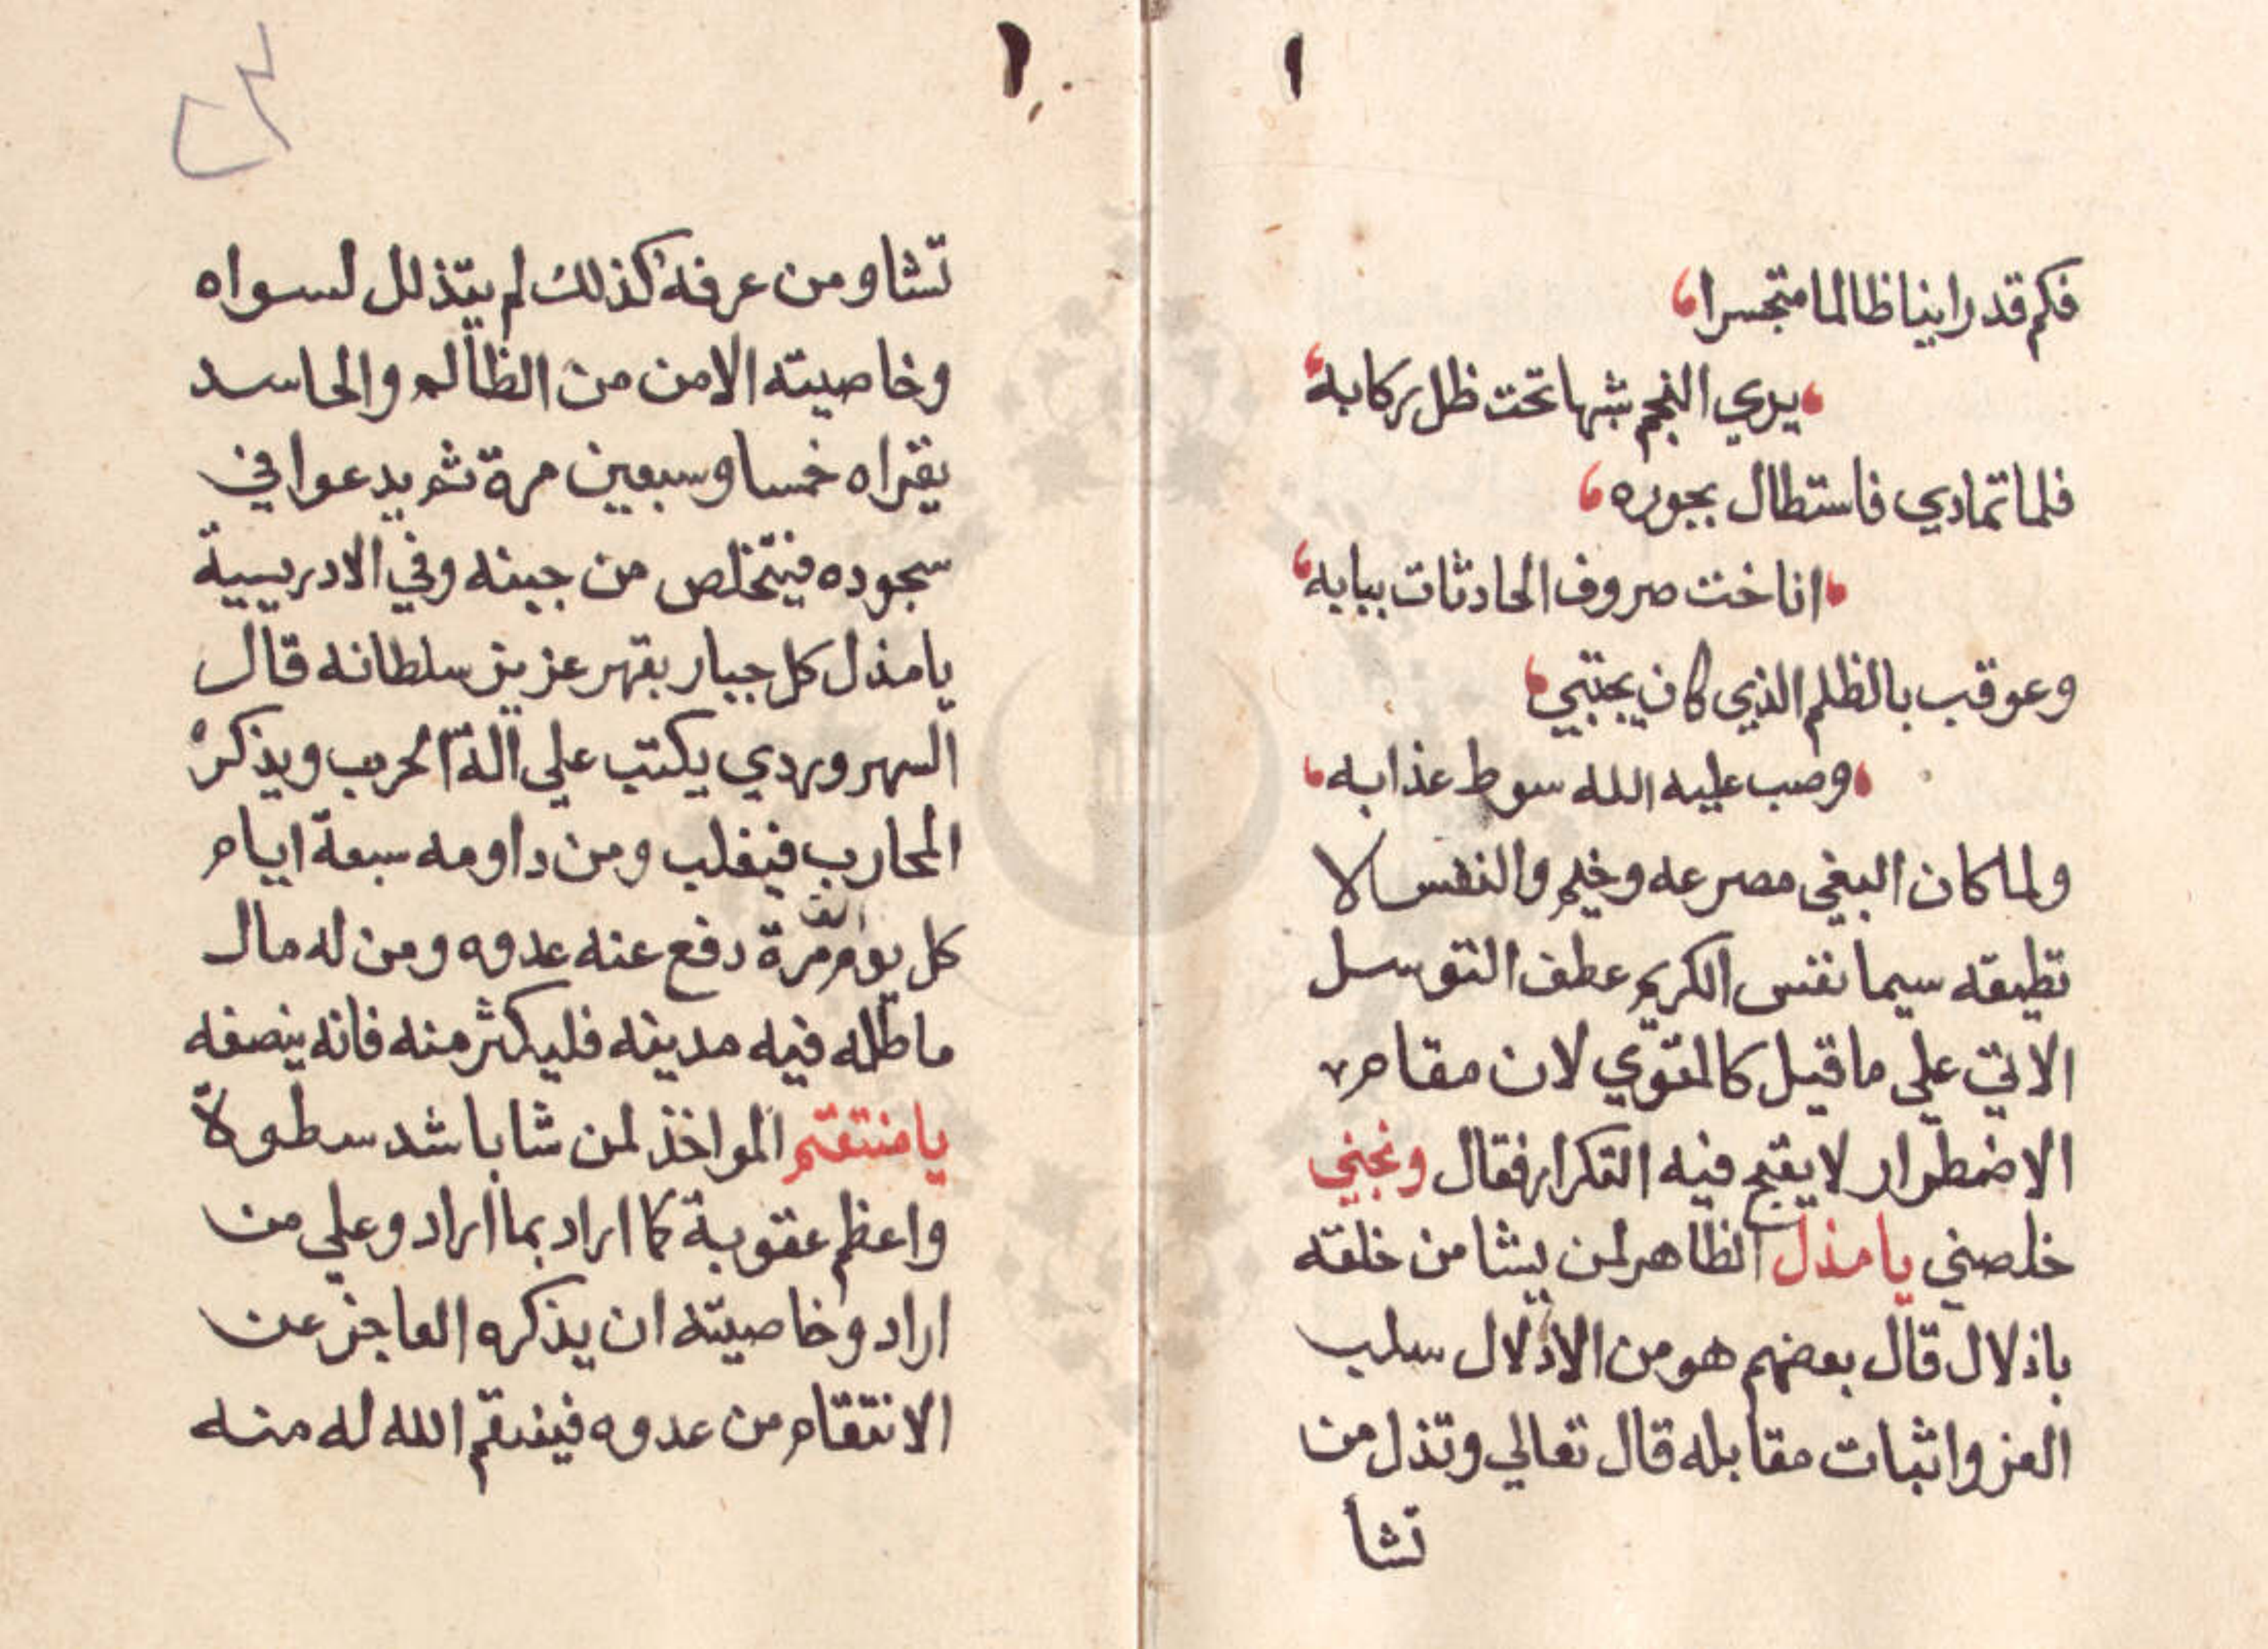 فكم قد راينا ظالما متجسرا
يري النجم شبها تحت ظل ركابه
فلما تمادي فاستطال بجوره
اناخت صروف الحادثات ببابه
وعوقب بالظلم الذي كان يجتبي
وصب عليه الله سوط عذابه
ولما كان البغي مصرعه وخيم والنفس لا
تطيقه سيما نفس الكريم عطف التوسل
الاتي علي ما قيل كالمقوي لان مقام
الاضطرار لا يقبح فيه التكرار فقال ونجني
خلصني يا مذل الظاهر لمن يشا من خلقه
باذلال قال بعضهم هو من الاذلال سلب
العز واثبات مقابله قال تعالي وتذل من
تشأ
٢٣
تشا ومن عرفه كذلك لم يتذلل لسواه
وخاصيته الامن من الظالم والحاسد
يقراه خمسا وسبعين مرة ثم يدعوا في
سجوده فيتخلص من حينه وفي الادريسية
يا مذل كل جبار بقهر عزيز سلطانه قال
السهروردي يكتب علي آلة الحرب ويذكره
المحارب فيغلب ومن داومه سبعة ايام
كل يوم الف مرة دفع عنه عدوه ومن له مال
ماطله فيه مدينه فليكثر منه فانه ينصفه
يا منتقم المواخذ لمن شا باشد سطوة
واعظم عقوبة كما اراد بما اراد وعلي من
اراد وخاصيته ان يذكره العاجز عن
الانتقام من عدوه فينتقم الله له منه